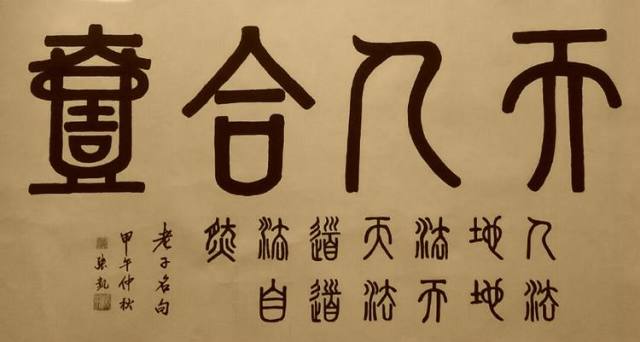 天人合壹
人法
地地
法天
天法
道道
法自
然
老子名句
甲午仲秋